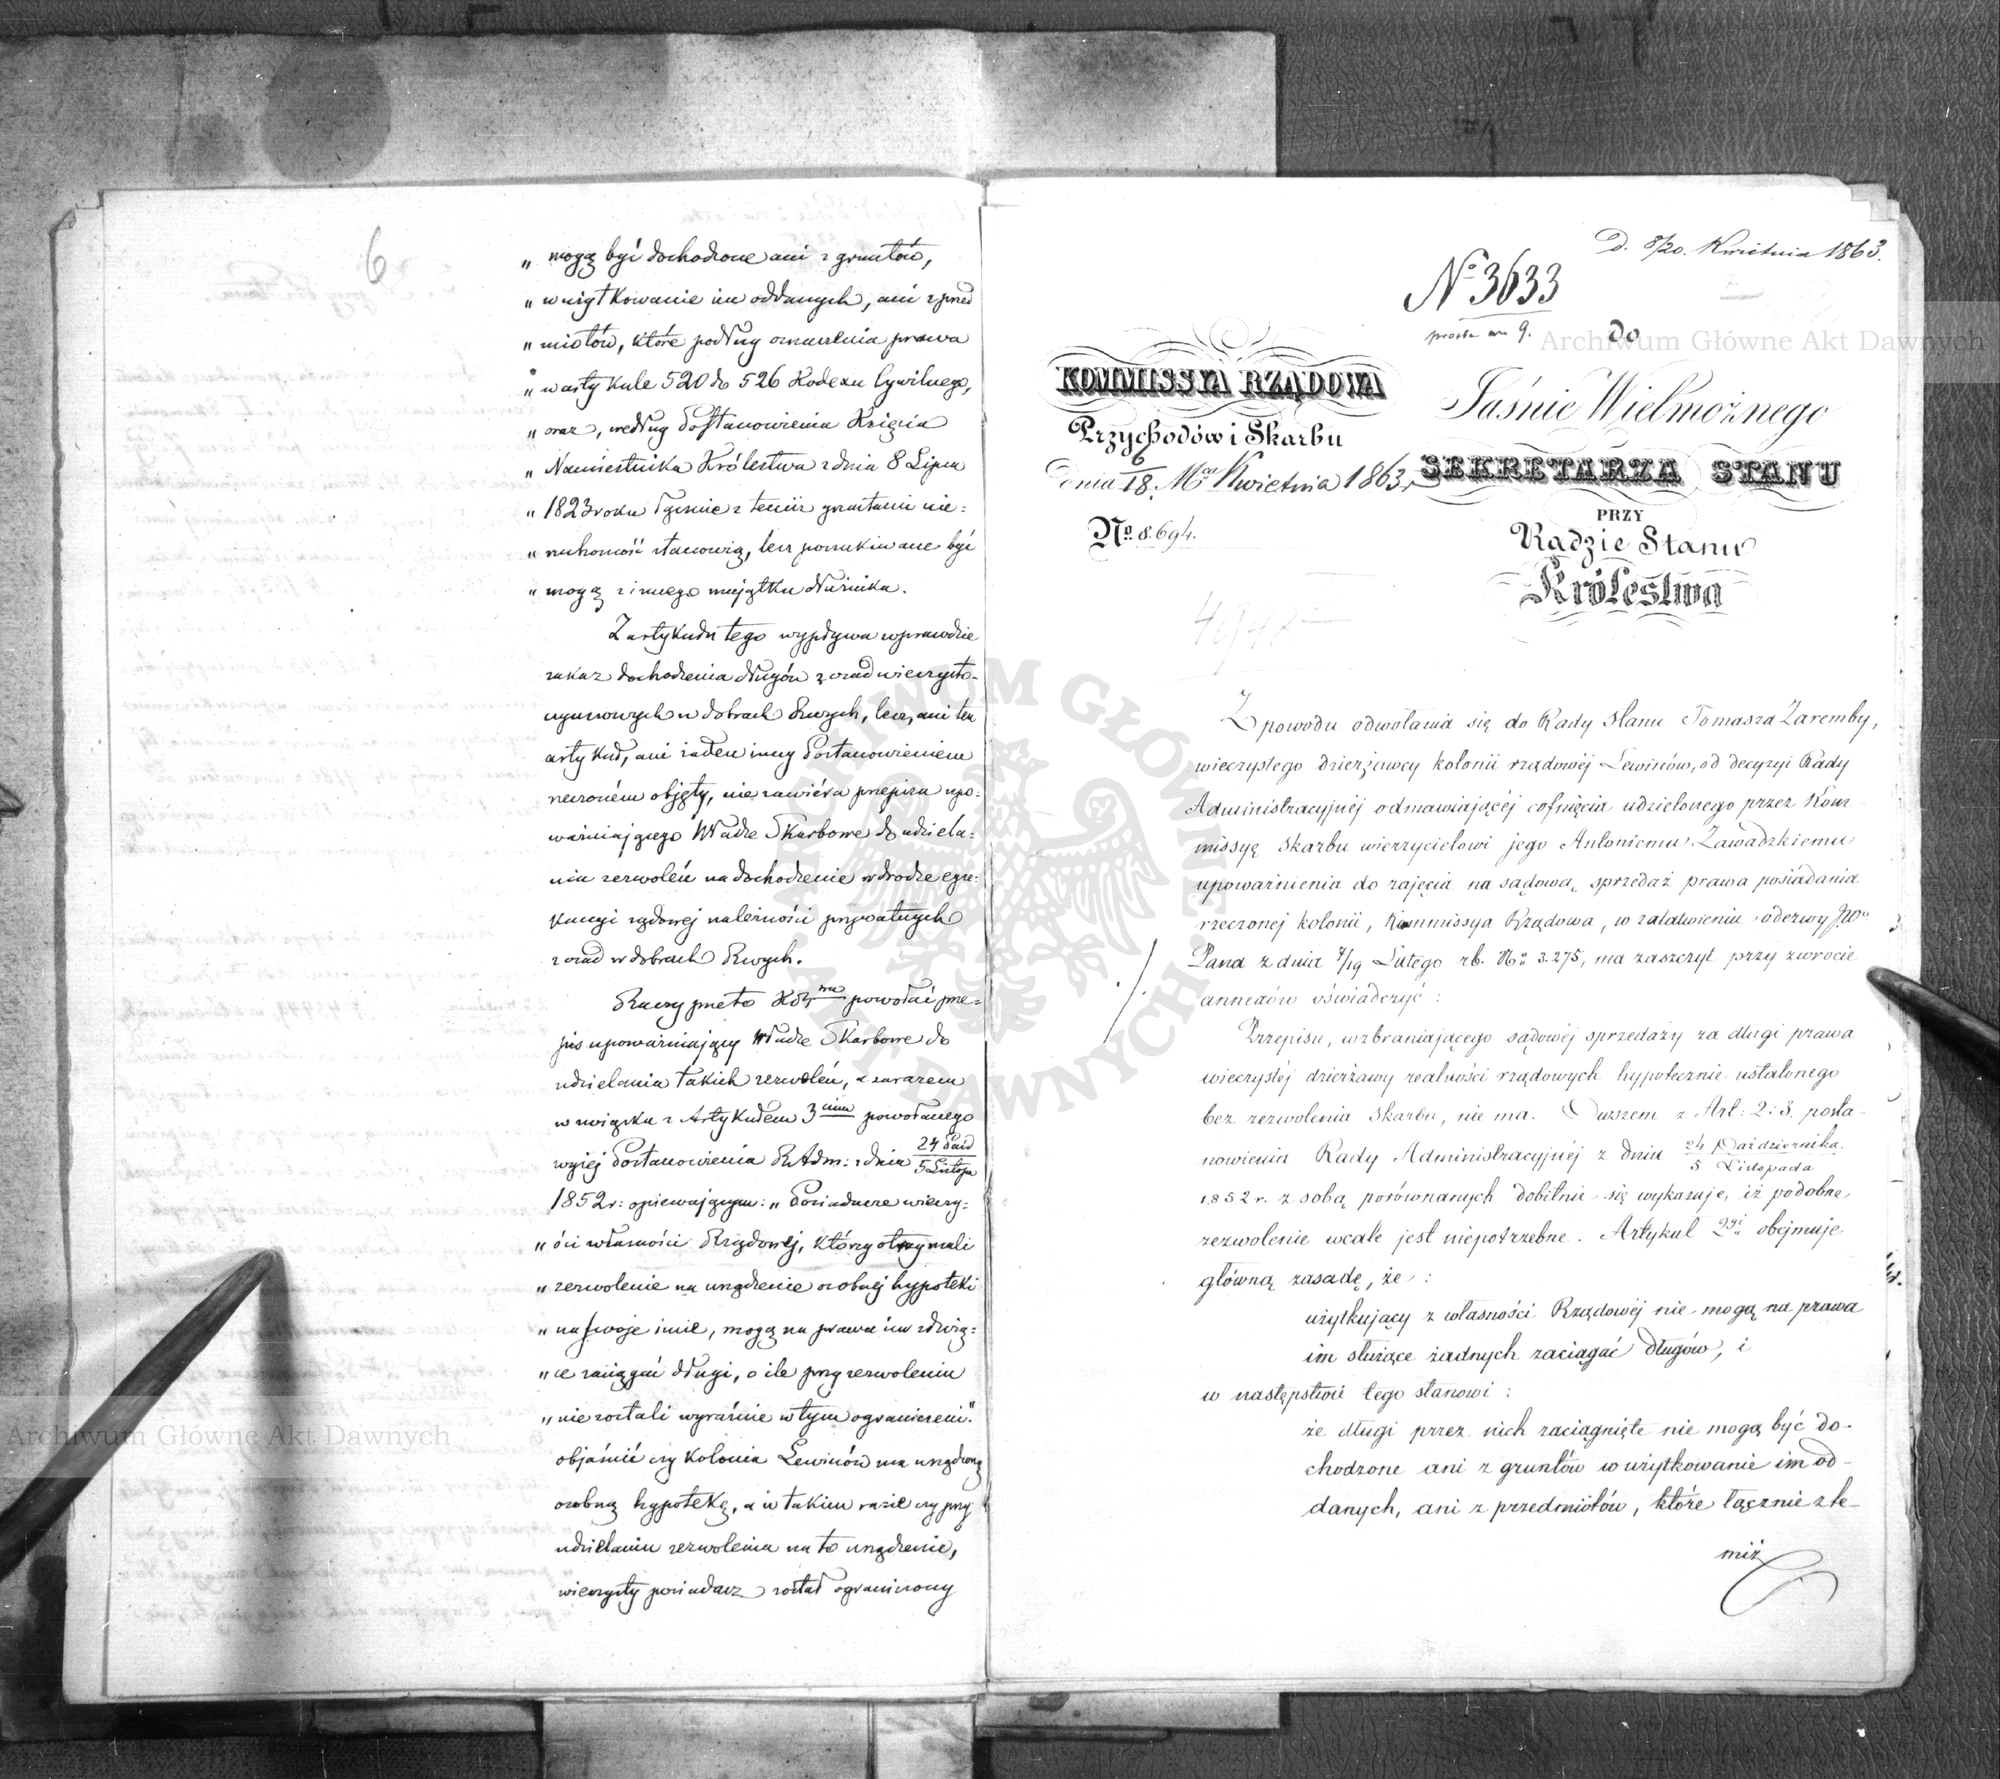 6
„ mogą być dochodzone ani z gruntów,
„ w użytkowanie im oddanych, ani z przed
„ miotów, które podług oznaczenia prawa
„ w artykule 520 do 526 Kodexu Cywilnego,
„ oraz, według Postanowienia Księcia
„ Namiestnika Królestwa z dnia 8 Lipca
„ 1823 roku łącznie z temiż gruntami nie=
„ ruchomość stanowią, lecz poszukiwane być
„ mogą z innego majątku dłużnika.
Z artykułu tego wypływa wprawdzie
zakaz dochodzenia długów z osad wieczysto-
czynszowych w dobrach Rwych, lecz, ani ten
artykuł, ani żaden inny Postanowieniem
rzeczoném objęty, nie zawiéra przepisu upo=
ważniającego Władze Skarbowe do udziela=
nia zezwoleń na dochodzenie w drodze egze=
kucyi sądowej należności prywatnych
z osad w dobrach Rwych.
Raczy przeto powołać prze=
pis upoważniający Władze Skarbowe do
udzielania takich zezwoleń, a zarazem
w związku z Artykułem 3cim powołanego
wyżej Postanowienia R. Adm: z dnia 24 Paźd / 5 Listopa
1852 r: opiewającym: „ Posiadacze wieczy=
„ ści własności Rządowej, którzy otrzymali
„ zezwolenie na urządzenie osobnej hypoteki
„ na swoje imie, mogą na prawa im służą=
„ ce zaciągać długi, o ile przy zezwoleniu
„ nie zostali wyraźnie w tym ograniczeni."
objaśnić czy Kolonia Lewinów ma urządzoną
osobną hypotekę, a w takim razie czy przy
udzielaniu zezwolenia na to urządzenie,
wieczysty posiadacz został ograniczony
D. 8/20. Kwietnia 1863.
No 3633
do
KOMMISSYA RZĄDOWA
Przychodów i Skarbu
dnia 6/18. Mca Kwietnia 1863 r
No. 8.694.
Jaśnie Wielmożnego
SEKRETARZA STANU
PRZY
Radzie Stanu
Królestwa
Z powodu odwołania się do Rady Stanu Tomasza Zaremby,
wieczystego dzierżawcy kolonii rządowéj Lewinów, od decyzyi Rady
Administracyjnéj odmawiającéj cofnięcia udzielonego przez Kom-
missyę Skarbu wierzycielowi jego Antoniemu Zawadzkiemu
upoważnienia do zajęcia na sądową sprzedaż prawa posiadania
rzeczonej kolonii, Kommissya Rządowa, w załatwieniu odezwy JWo
Pana z dnia 7/19 Lutego rb. No 3.275, ma zaszczyt przy zwrocie
annexów oświadczyć:
Przepisu, wzbraniającego sądowéj sprzedaży za długi prawa
wieczystéj dzierżawy realności rządowych hypotecznie ustalonego
bez zezwolenia Skarbu, nie ma. Owszem z Art: 2 i 3. posta-
nowienia Rady Administracyjnéj z dnia 24 Października / 5 Listopada
1852 r. z sobą porównanych dobitnie się wykazuje, iż podobne
zezwolenie wcale jest niepotrzebne. Artykuł 2gi obejmuje
główną zasadę, że:
użytkujący z własności Rządowéj nie mogą na prawa
im służące żadnych zaciągać długów, i
w następstwie tego stanowi:
że długi przez nich zaciągnięte nie mogą być do-
chodzone ani z gruntów w użytkowanie im od-
danych, ani z przedmiotów, które łącznie z te-
miż
Archiwum Główne Akt Dawnych
Archiwum Główne Akt Dawnych
ARCHIWUM GŁÓWNE AKT DAWNYCH